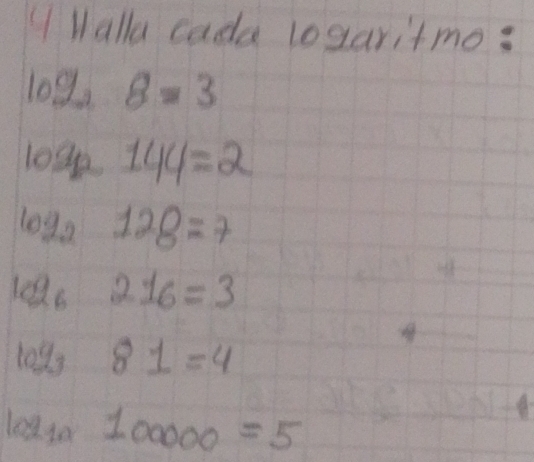 4 Halla cada logaritmo:
log₂ 8 = 3
log₁₂ 144 = 2
log₂ 128 = 7
log₆ 216 = 3
log₃ 81 = 4
log₁₀ 100000 = 5